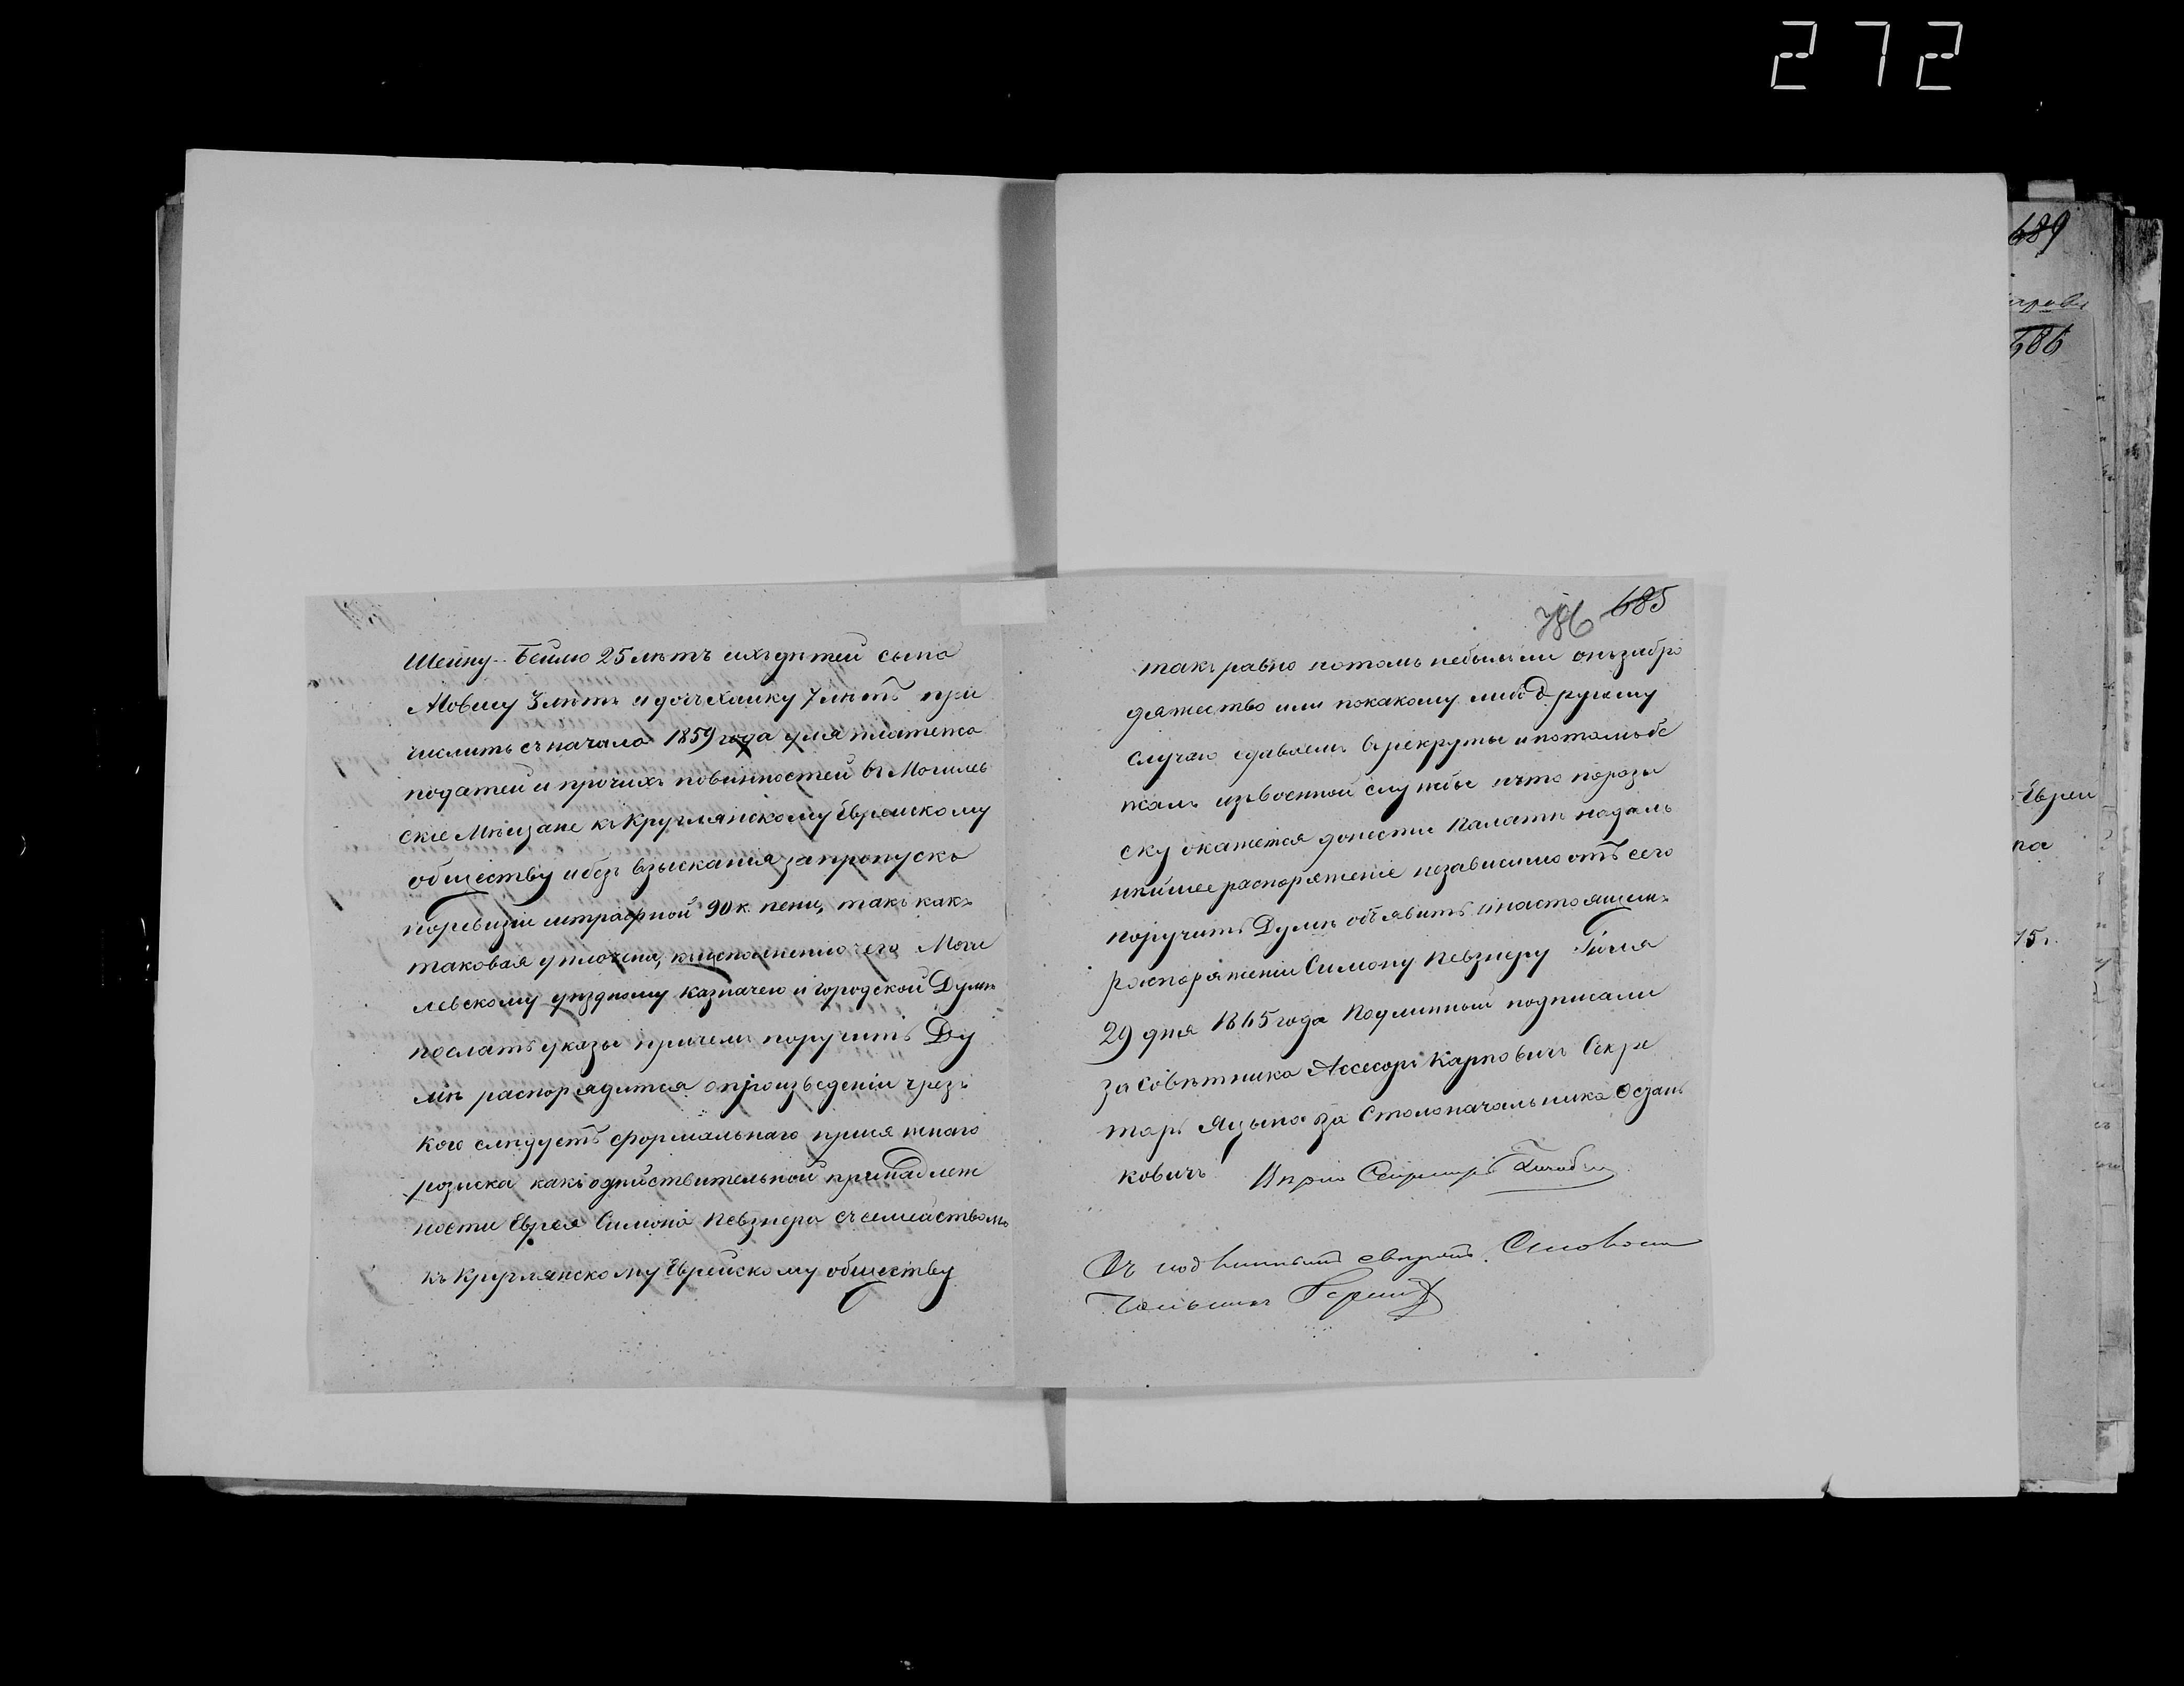 272
689
686
Шейну-Бейлю 25 лѣтъ ихъ дѣтей сына
Мовшу 3 лѣтъ и дочь Хаику 7 лѣтъ при
числить съ начала 1859 года для платежа
податей и прочихъ повинностей въ Могилев
ские Мѣщане къ Круглянскому Еврейскому
обществу и безъ взыскания за пропускъ
по ревизіи штрафной 90 к. пени, такъ какъ
таковая уплочена, къ исполненію чего Моги
левскому уѣздному казначею и городской Думѣ
послать указы причемъ поручить Ду
мѣ распорядится о произведеніи чрезъ
кого слѣдуетъ формальнаго присяжнаго
розиска какъ о дѣйствительной принадлеж
ности Еврея Симона Певзнера съ семействомъ
къ Круглянскому Еврейскому обществу
786 685
такъ равно потомъ небылъ ли онъ за бро
дяжество или по какому либо другому
случаю сдаваемъ въ рекруты и потомъ бе
жалъ изъ военной службы и что по розы
ску окажется донести Палатѣ на даль
нѣйшее распоряженіе независимо отъ сего
поручить Думѣ объявить о настоящемъ
распоряженіи Симону Певзнеру Іюля
29 дня 1865 года Подлинный подписали
за Совѣтника Ассесоръ Карповичъ Секре
тарь Яцына за Столоначальника Осзань
ковичъ
Съ подлиннымъ свѣрялъ Столона
чальникъ
Еврея
на